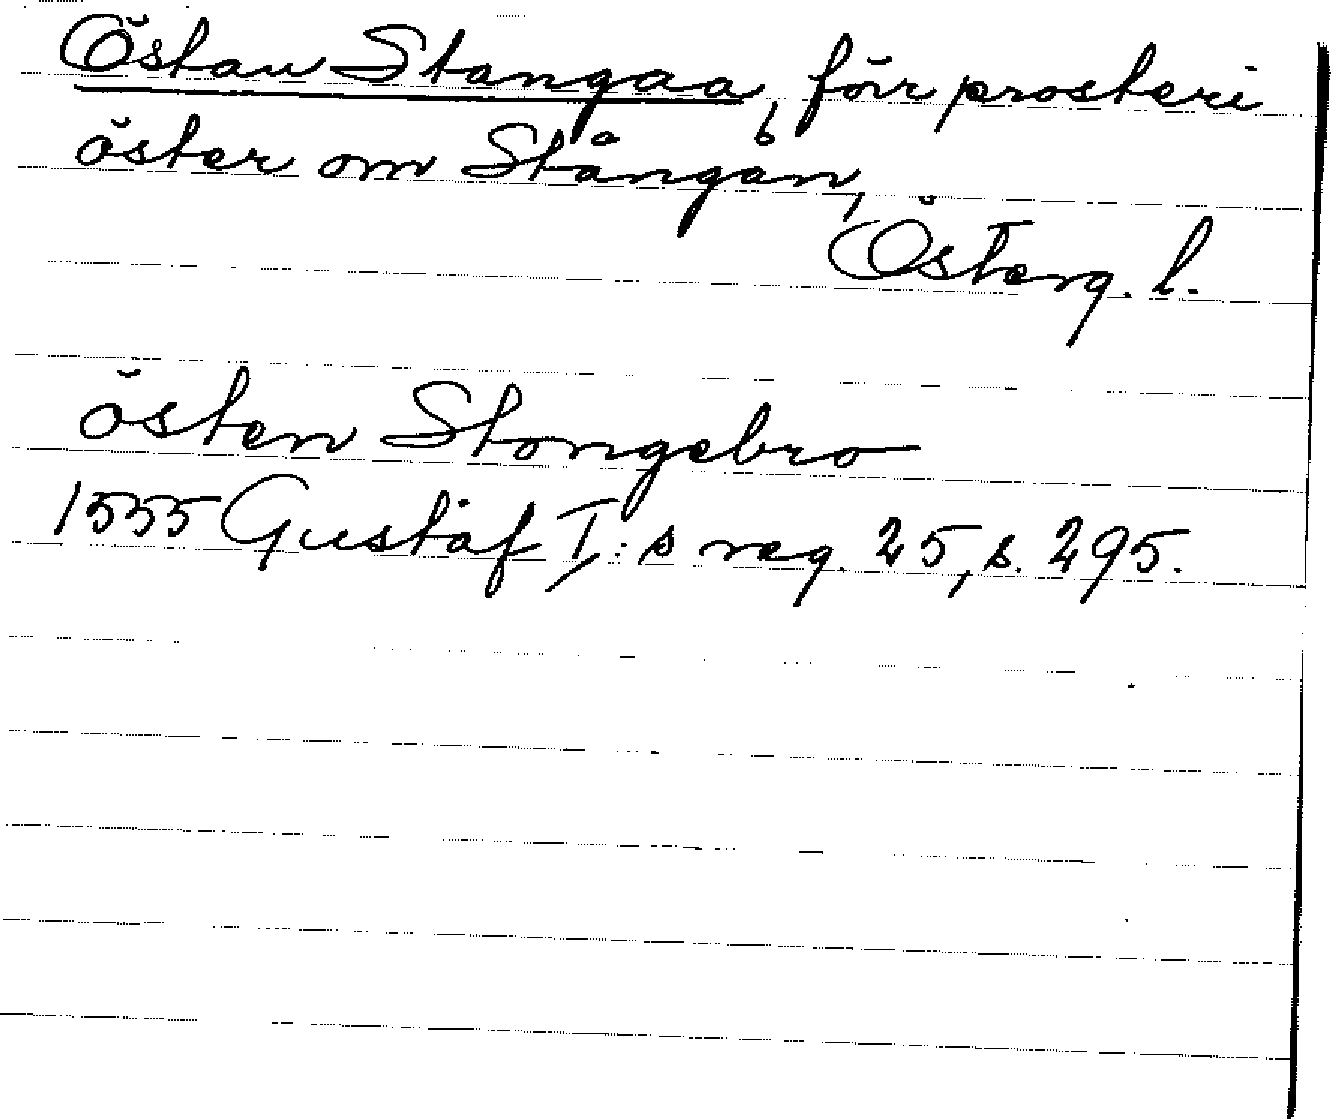 Östan Stangaa, förr prosteri
öster om Stångån,
Österg. l.
östen Stongebro
1555 Gustaf I:s reg. 25, s. 295.